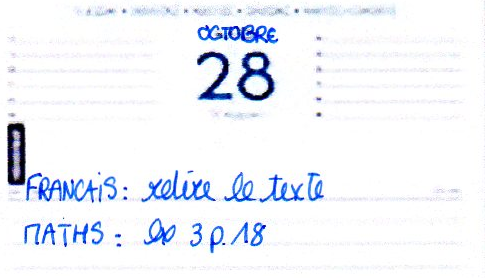 OCTOBRE
28
FRANCAIS: relire le texte
MATHS: ex 3 p. 18